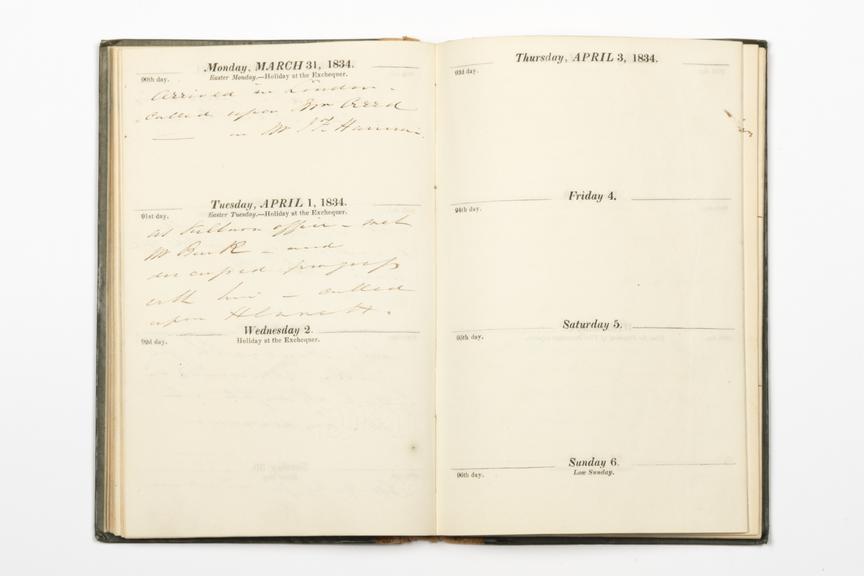 Monday, MARCH 31, 1834.
90th day.
Easter Monday.—Holiday at the Exchequer.
arrived in London -
called upon Wm
Mr
Tuesday, APRIL 1, 1834.
91st day.
Easter Tuesday.—Holiday at the Exchequer.
at office - met
Mr - and
progress
with him - called
upon
Wednesday 2.
92d day.
Holiday at the Exchequer.
Thursday, APRIL 3, 1834.
93d day.
Friday 4.
94th day.
Saturday 5.
95th day.
Sunday 6.
96th day.
Low Sunday.